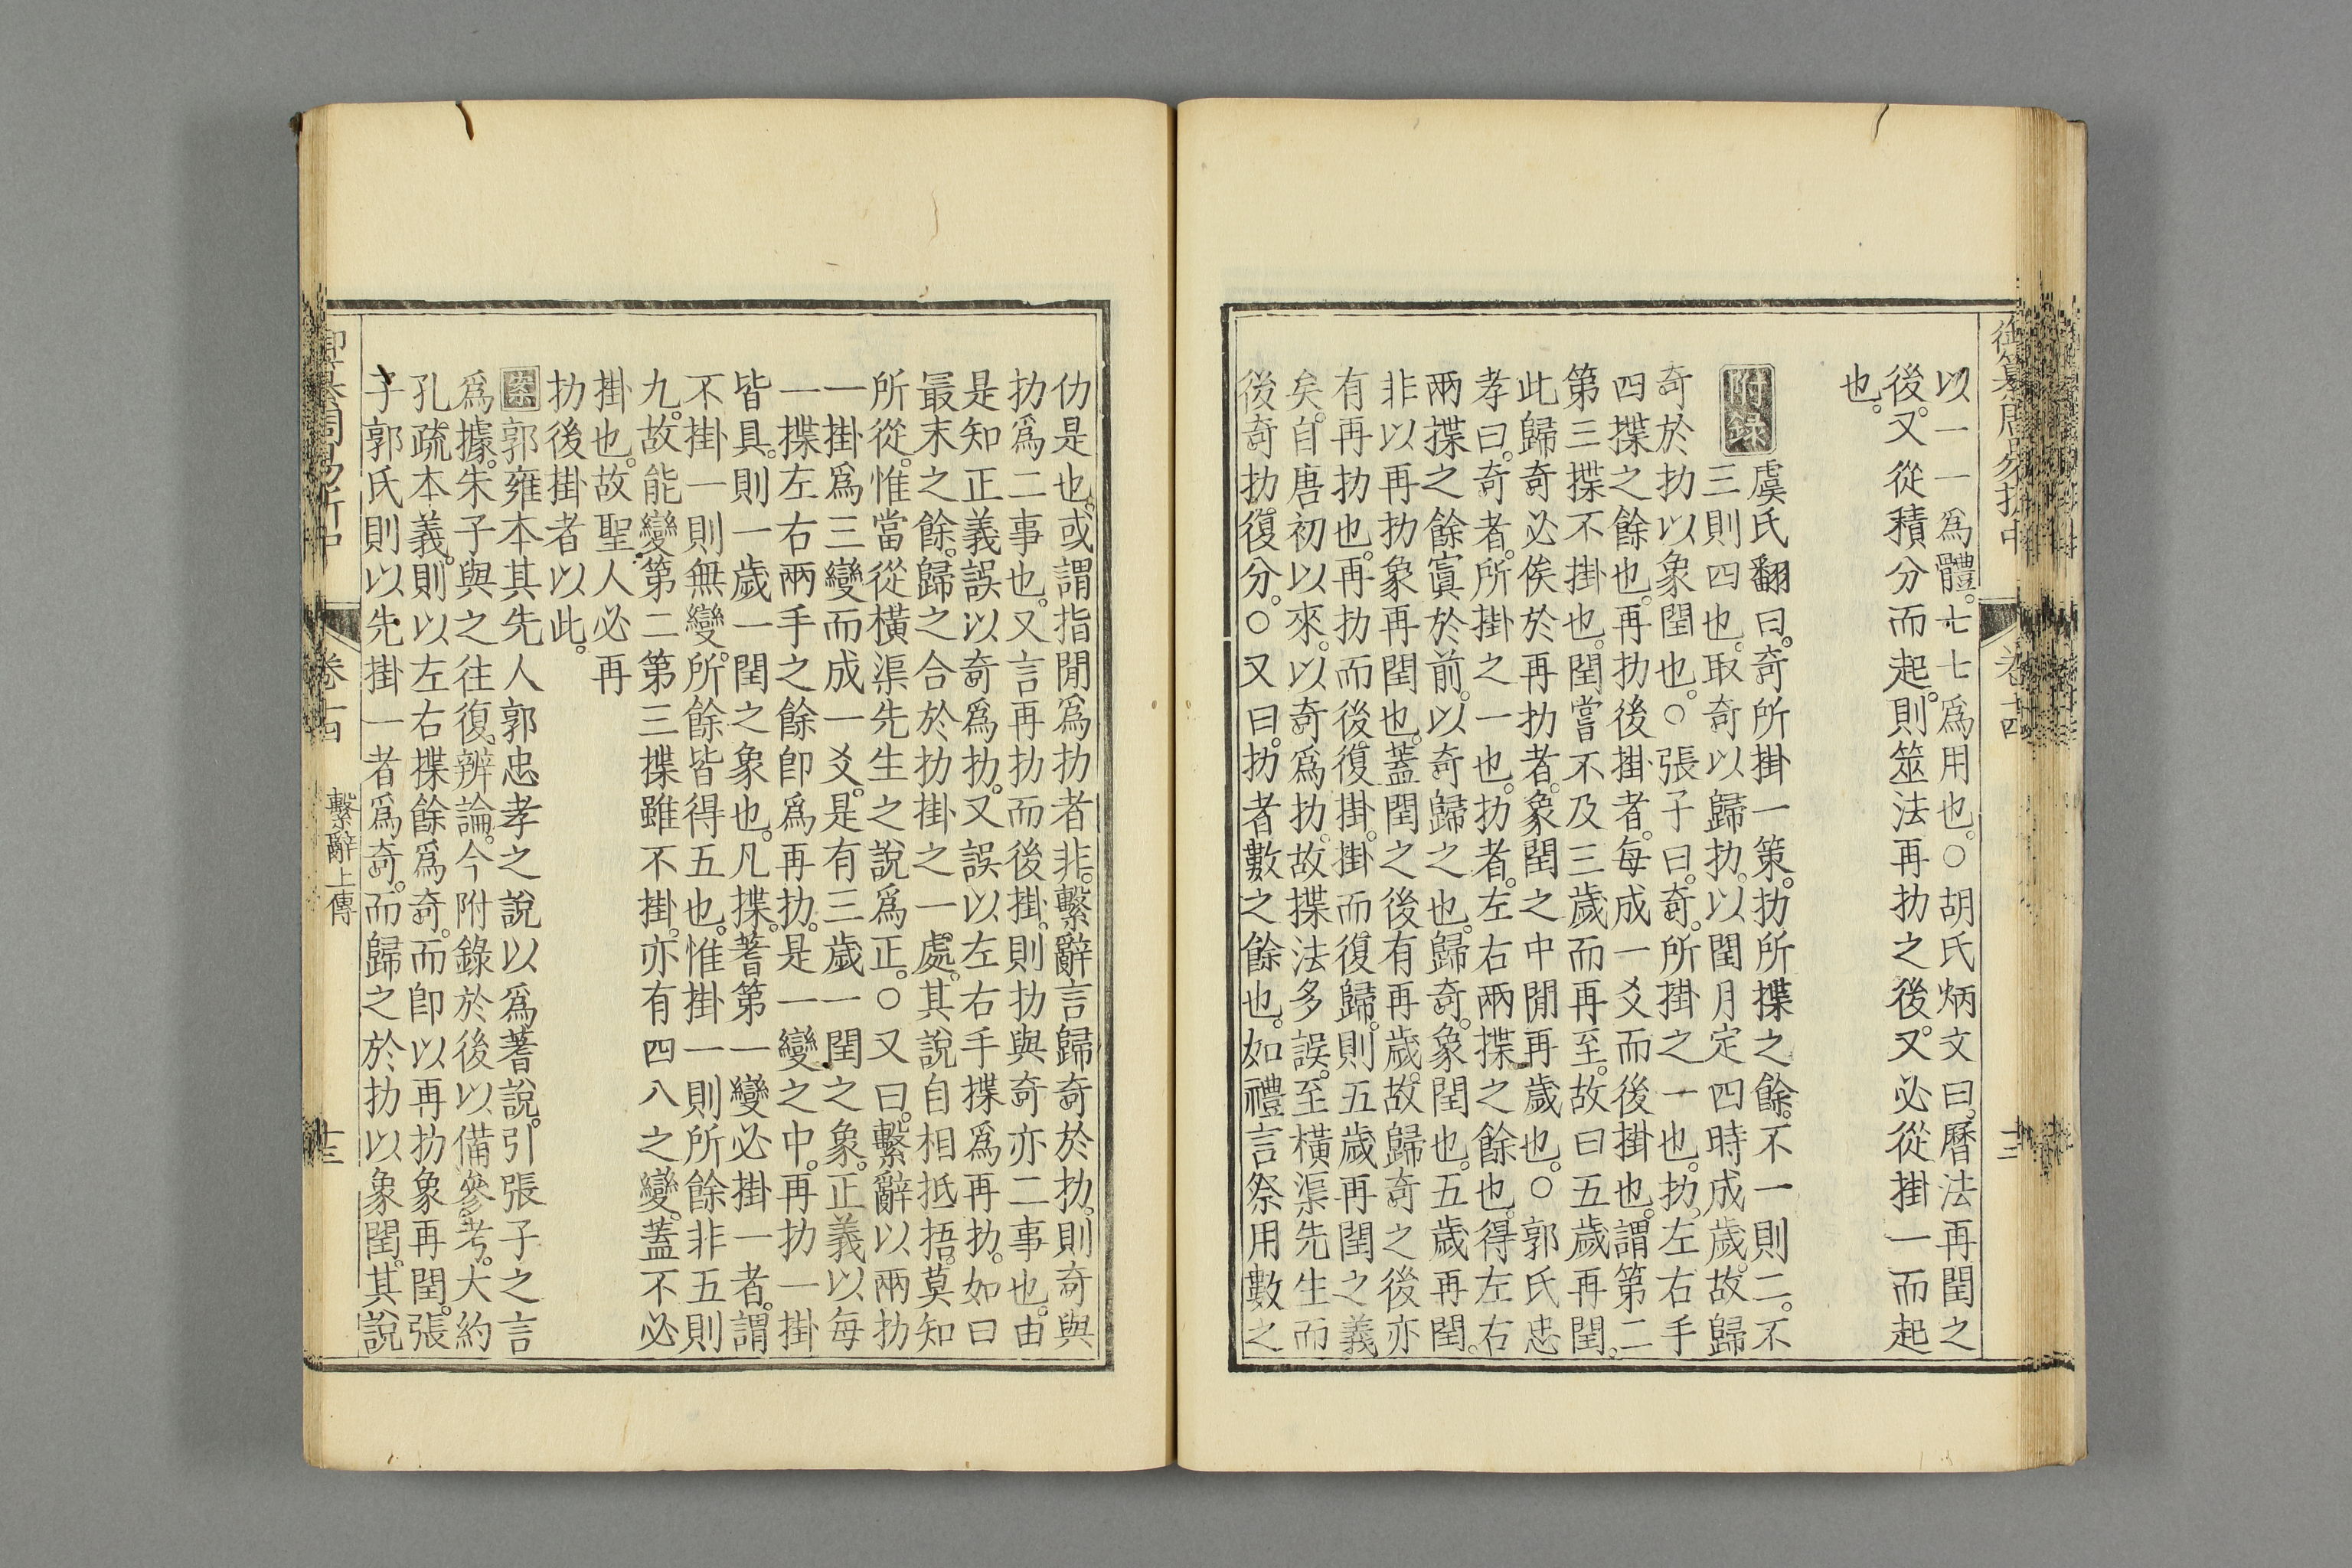 以一一爲體。七七爲用也。○胡氏炳文曰。曆法再閏之
後。又從積分而起。則筮法再扐之後。又必從掛一而起
也。
附錄
虞氏翻曰。奇所掛一策。扐所揲之餘。不一則二。不
三則四也。取奇以歸扐。以閏月定四時成歲。故歸
奇於扐以象閏也。○張子曰。奇。所掛之一也。扐。左右手
四揲之餘也。再扐後掛者。每成一爻而後掛也。謂第二
第三揲不掛也。閏嘗不及三歲而再至。故曰五歲再閏。
此歸奇必俟於再扐者。象閏之中閒再歲也。○郭氏忠
孝曰。奇者。所掛之一也。扐者。左右兩揲之餘也。得左右
兩揲之餘寘於前。以奇歸之也。歸奇。象閏也。五歲再閏。
非以再扐象再閏也。蓋閏之後有再歲。故歸奇之後亦
有再扐也。再扐而後復掛。掛而復歸。則五歲再閏之義
矣。自唐初以來。以奇爲扐。故揲法多誤。至橫渠先生而
後奇扐復分。○又曰。扐者數之餘也。如禮言祭用數之
仂是也。或謂指閒爲扐者非。繫辭言歸奇於扐。則奇與
扐爲二事也。又言再扐而後掛。則扐與奇亦二事也。由
是知正義誤以奇爲扐。又誤以左右手揲爲再扐。如曰
最末之餘。歸之合於扐掛之一處。其說自相抵捂。莫知
所從。惟當從橫渠先生之說爲正。○又曰。繫辭以兩扐
一掛爲三變而成一爻。是有三歲一閏之象。正義以每
一揲左右兩手之餘卽爲再扐。是一變之中。再扐一掛
皆具。則一歲一閏之象也。凡揲蓍第一變必掛一者。謂
不掛一則無變。所餘皆得五也。惟掛一則所餘非五則
九。故能變。第二第三揲雖不掛。亦有四八之變。蓋不必
掛也。故聖人必再
扐後掛者以此。
案 郭雍本其先人郭忠孝之說以爲蓍說。引張子之言
爲據。朱子與之往復辨論。今附錄於後以備參考。大約
孔疏本義。則以左右揲餘爲奇。而卽以再扐象再閏。張
子郭氏則以先掛一者爲奇。而歸之於扐以象閏。其說
卷十四
繫辭上傳
十三